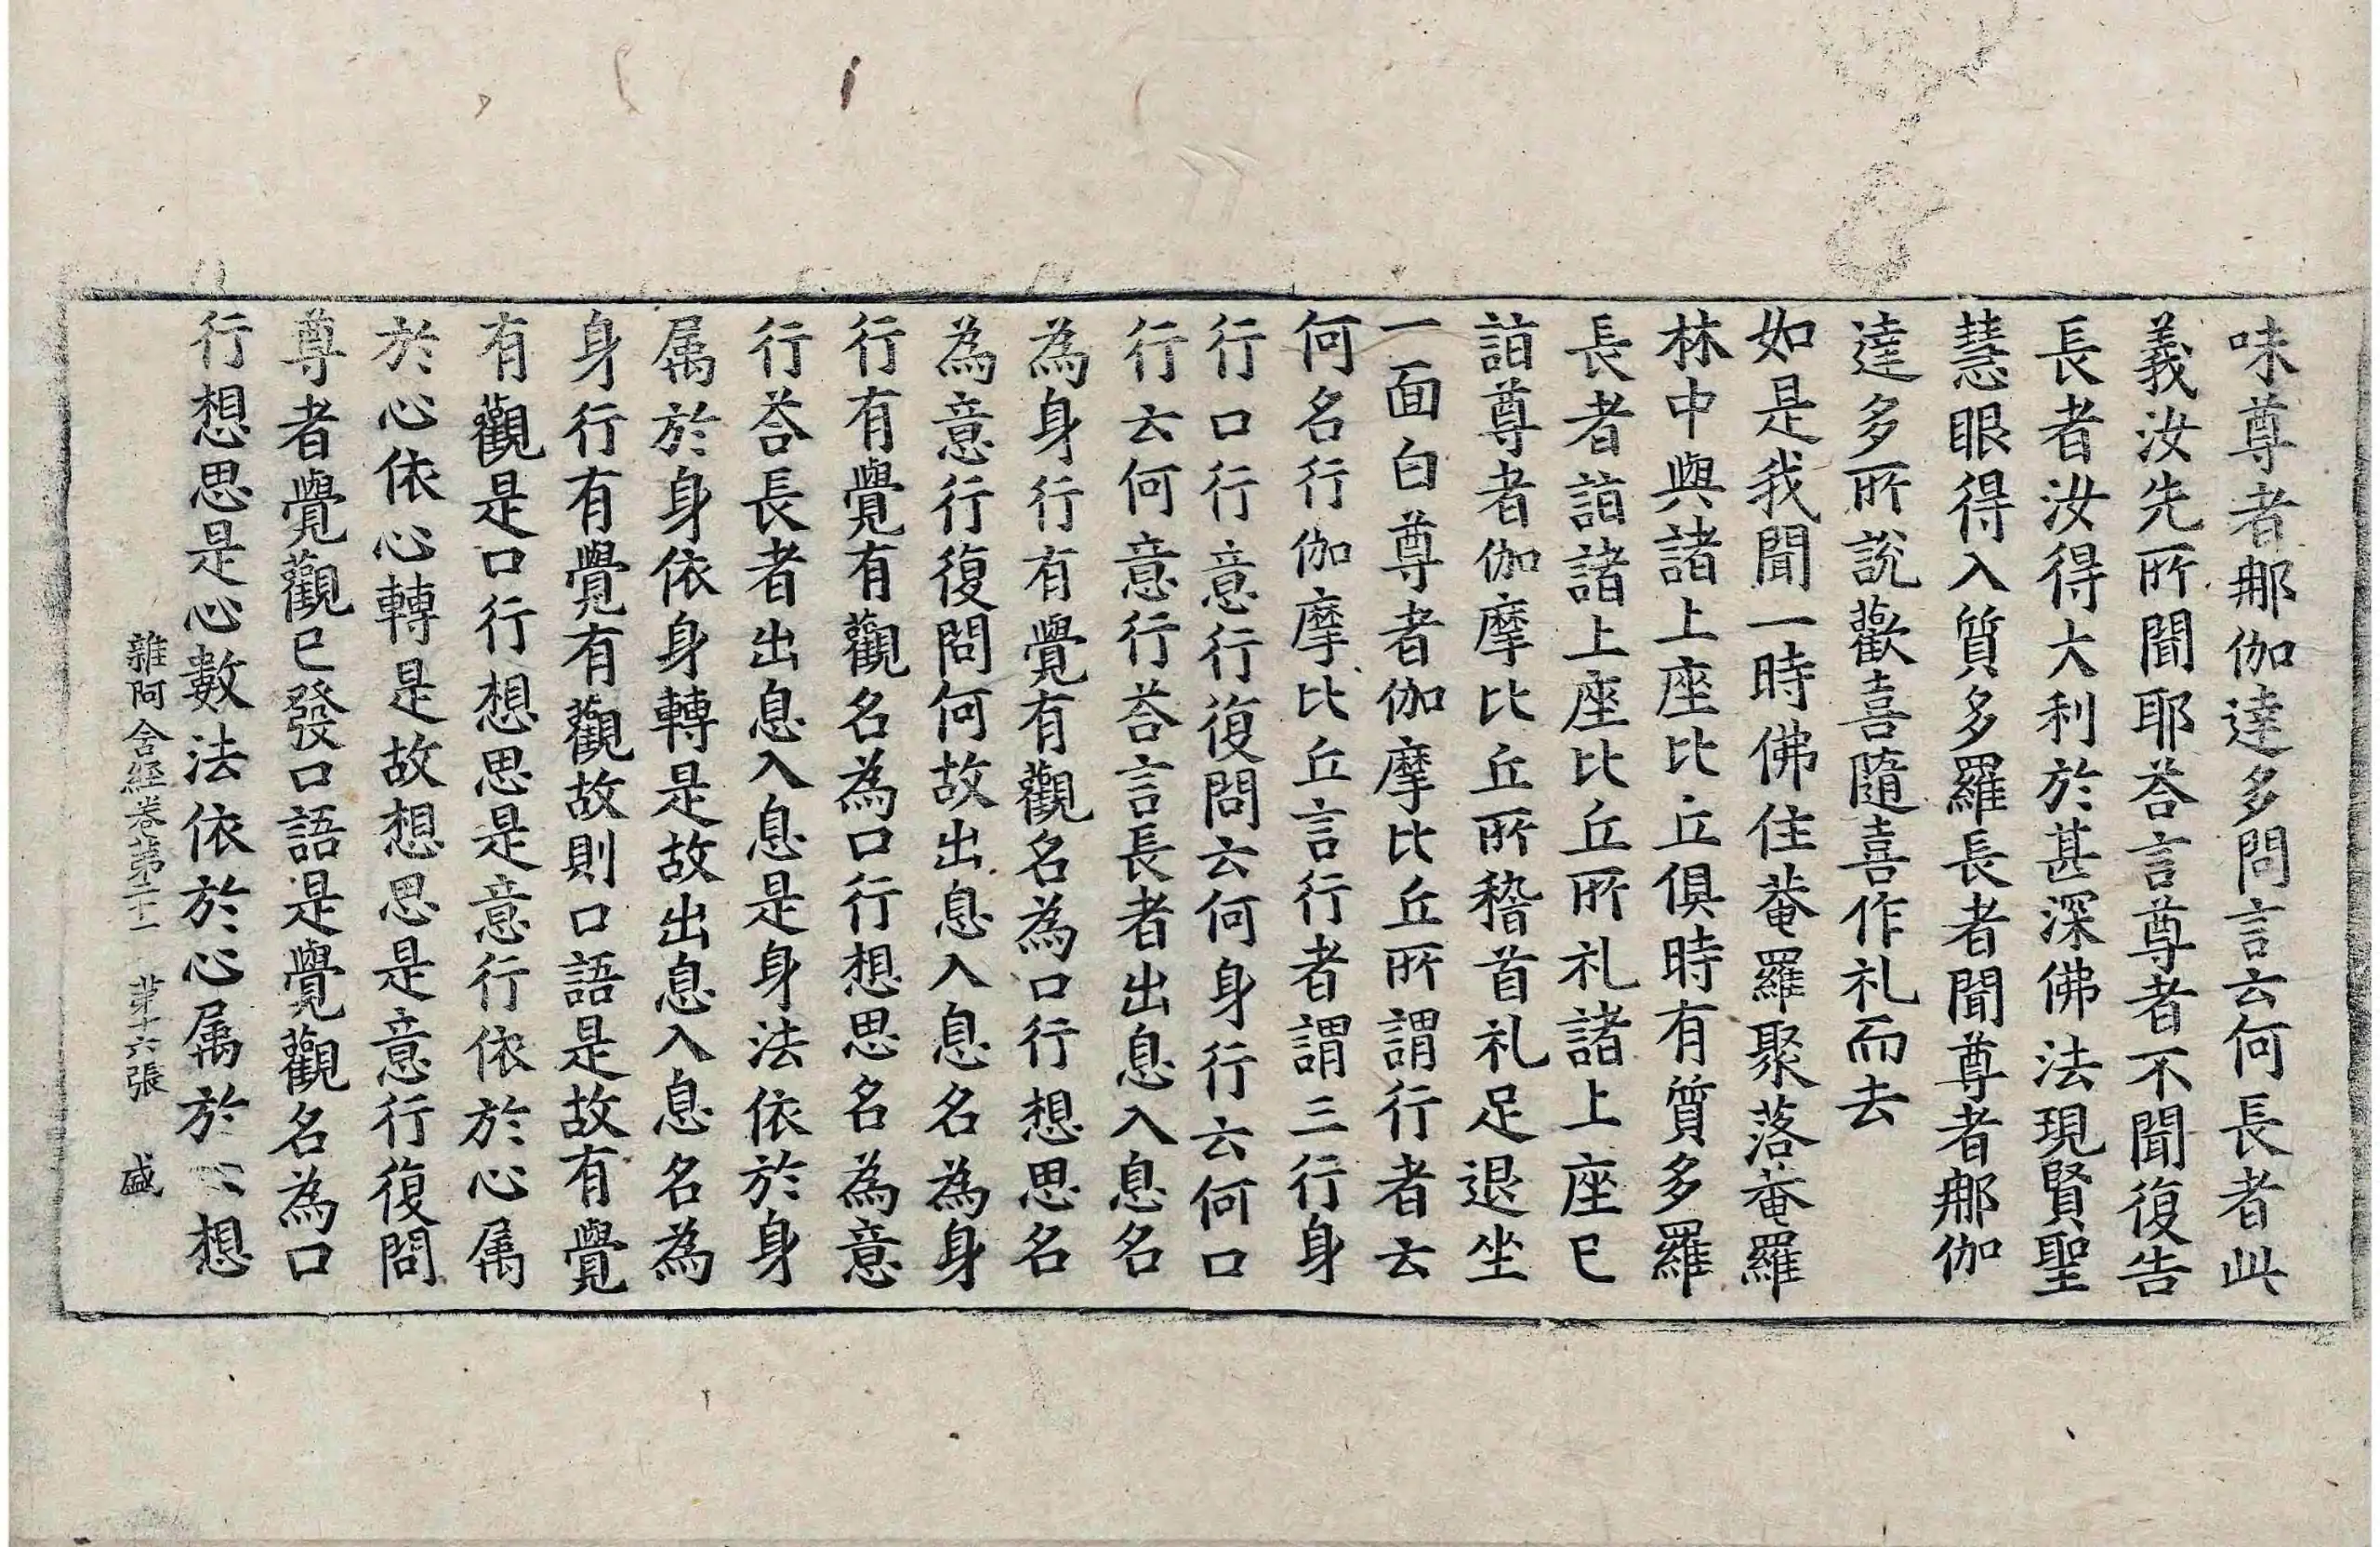 味尊者郍伽達多問言云何長者此
義汝先所聞耶荅言尊者不聞復告
長者汝得大利於甚深佛法現賢聖
慧眼得入質多羅長者聞尊者郍伽
達多所說歡喜隨喜作礼而去
如是我聞一時佛住菴羅聚落菴羅
林中與諸上座比丘俱時有質多羅
長者詣諸上座比丘所礼諸上座已
詣尊者伽摩比丘所稽首礼足退坐
一面白尊者伽摩比丘所謂行者云
何名行伽摩比丘言行者謂三行身
行口行意行復問云何身行云何口
行云何意行荅言長者出息入息名
為身行有覺有觀名為口行想思名
為意行復問何故出息入息名為身
行有覺有觀名為口行想思名為意
行荅長者出息入息是身法依於身
属於身依身轉是故出息入息名為
身行有覺有觀故則口語是故有覺
有觀是口行想思是意行依於心属
於心依心轉是故想思是意行復問
尊者覺觀已發口語是覺觀名為口
行想思是心數法依於心属於心想
雜阿含經卷第二十一 第十六張 盛